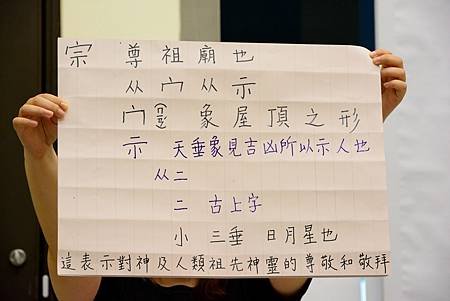 宗 尊祖廟也
从宀从示
宀 象屋頂之形
示 天垂象見吉凶所以示人也
从二
二 古上字
小 三垂 日月星也
這表示對神及人類祖先神靈的尊敬和敬拜